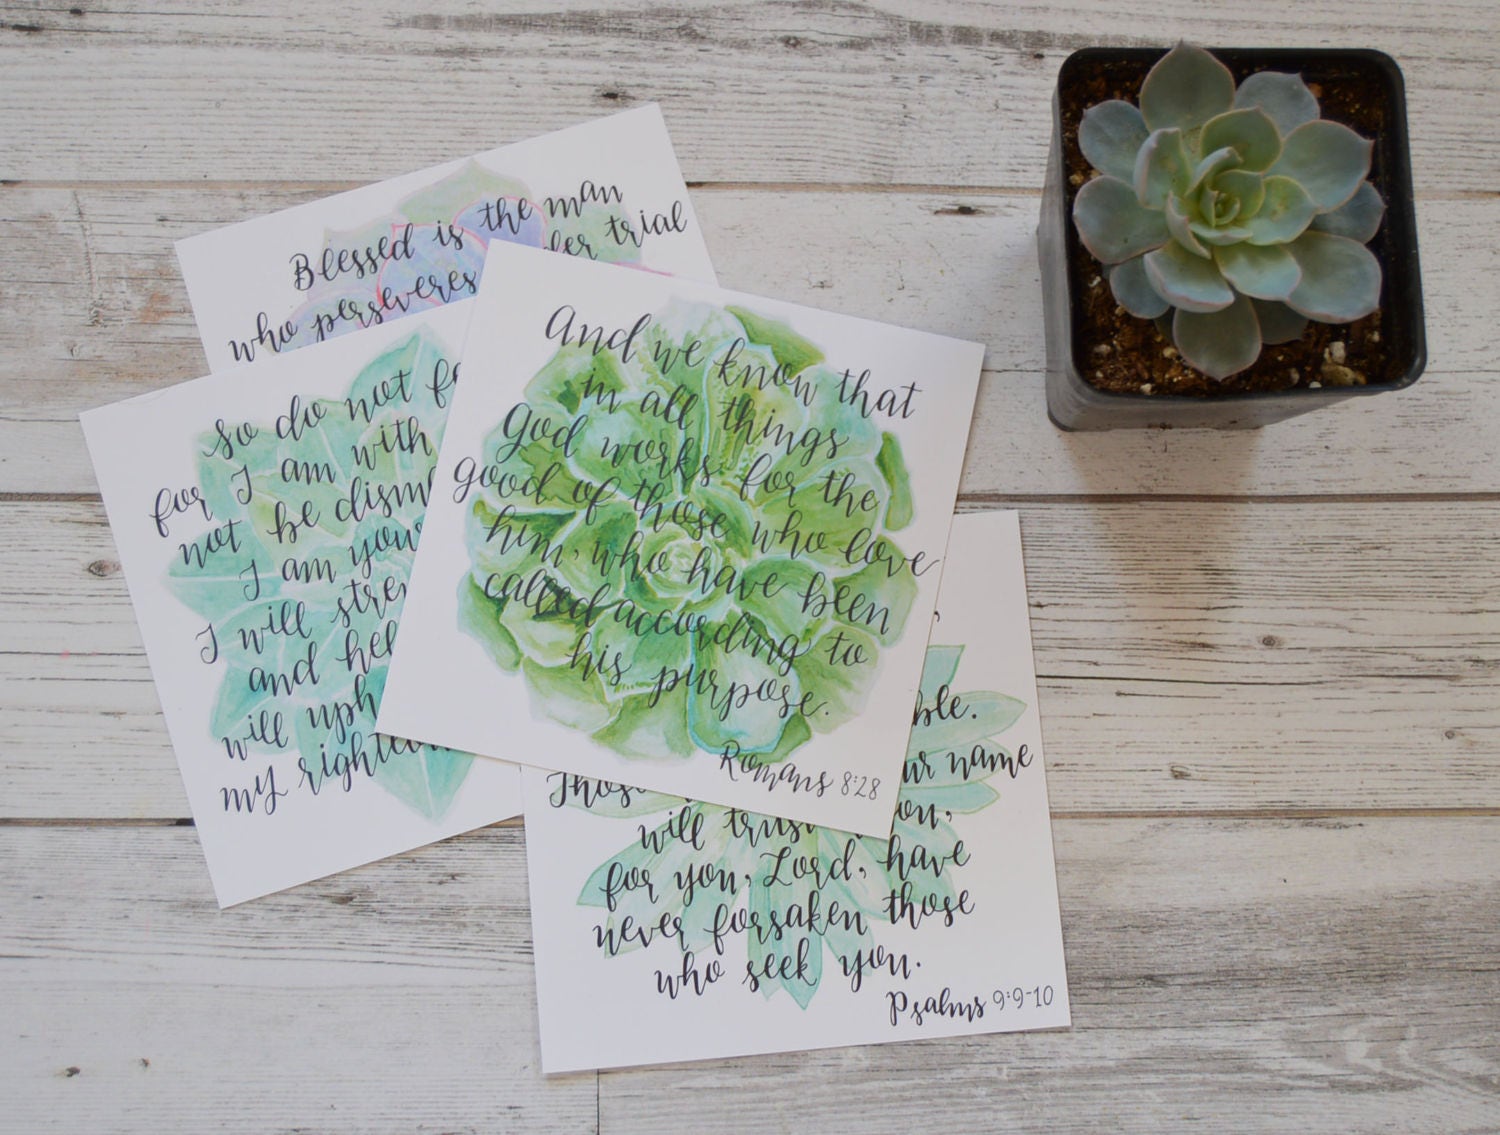 Blessed is the man
trial
who perseveres
So do not
for I am with
not be
I am
I will
and
will
my
And we know that
in all things
God works for the
good of those who love
him, who have been
called according to
his purpose.
Romans 8:28
name
will trust
for you, Lord, have
never forsaken those
who seek you.
Psalms 9:9-10